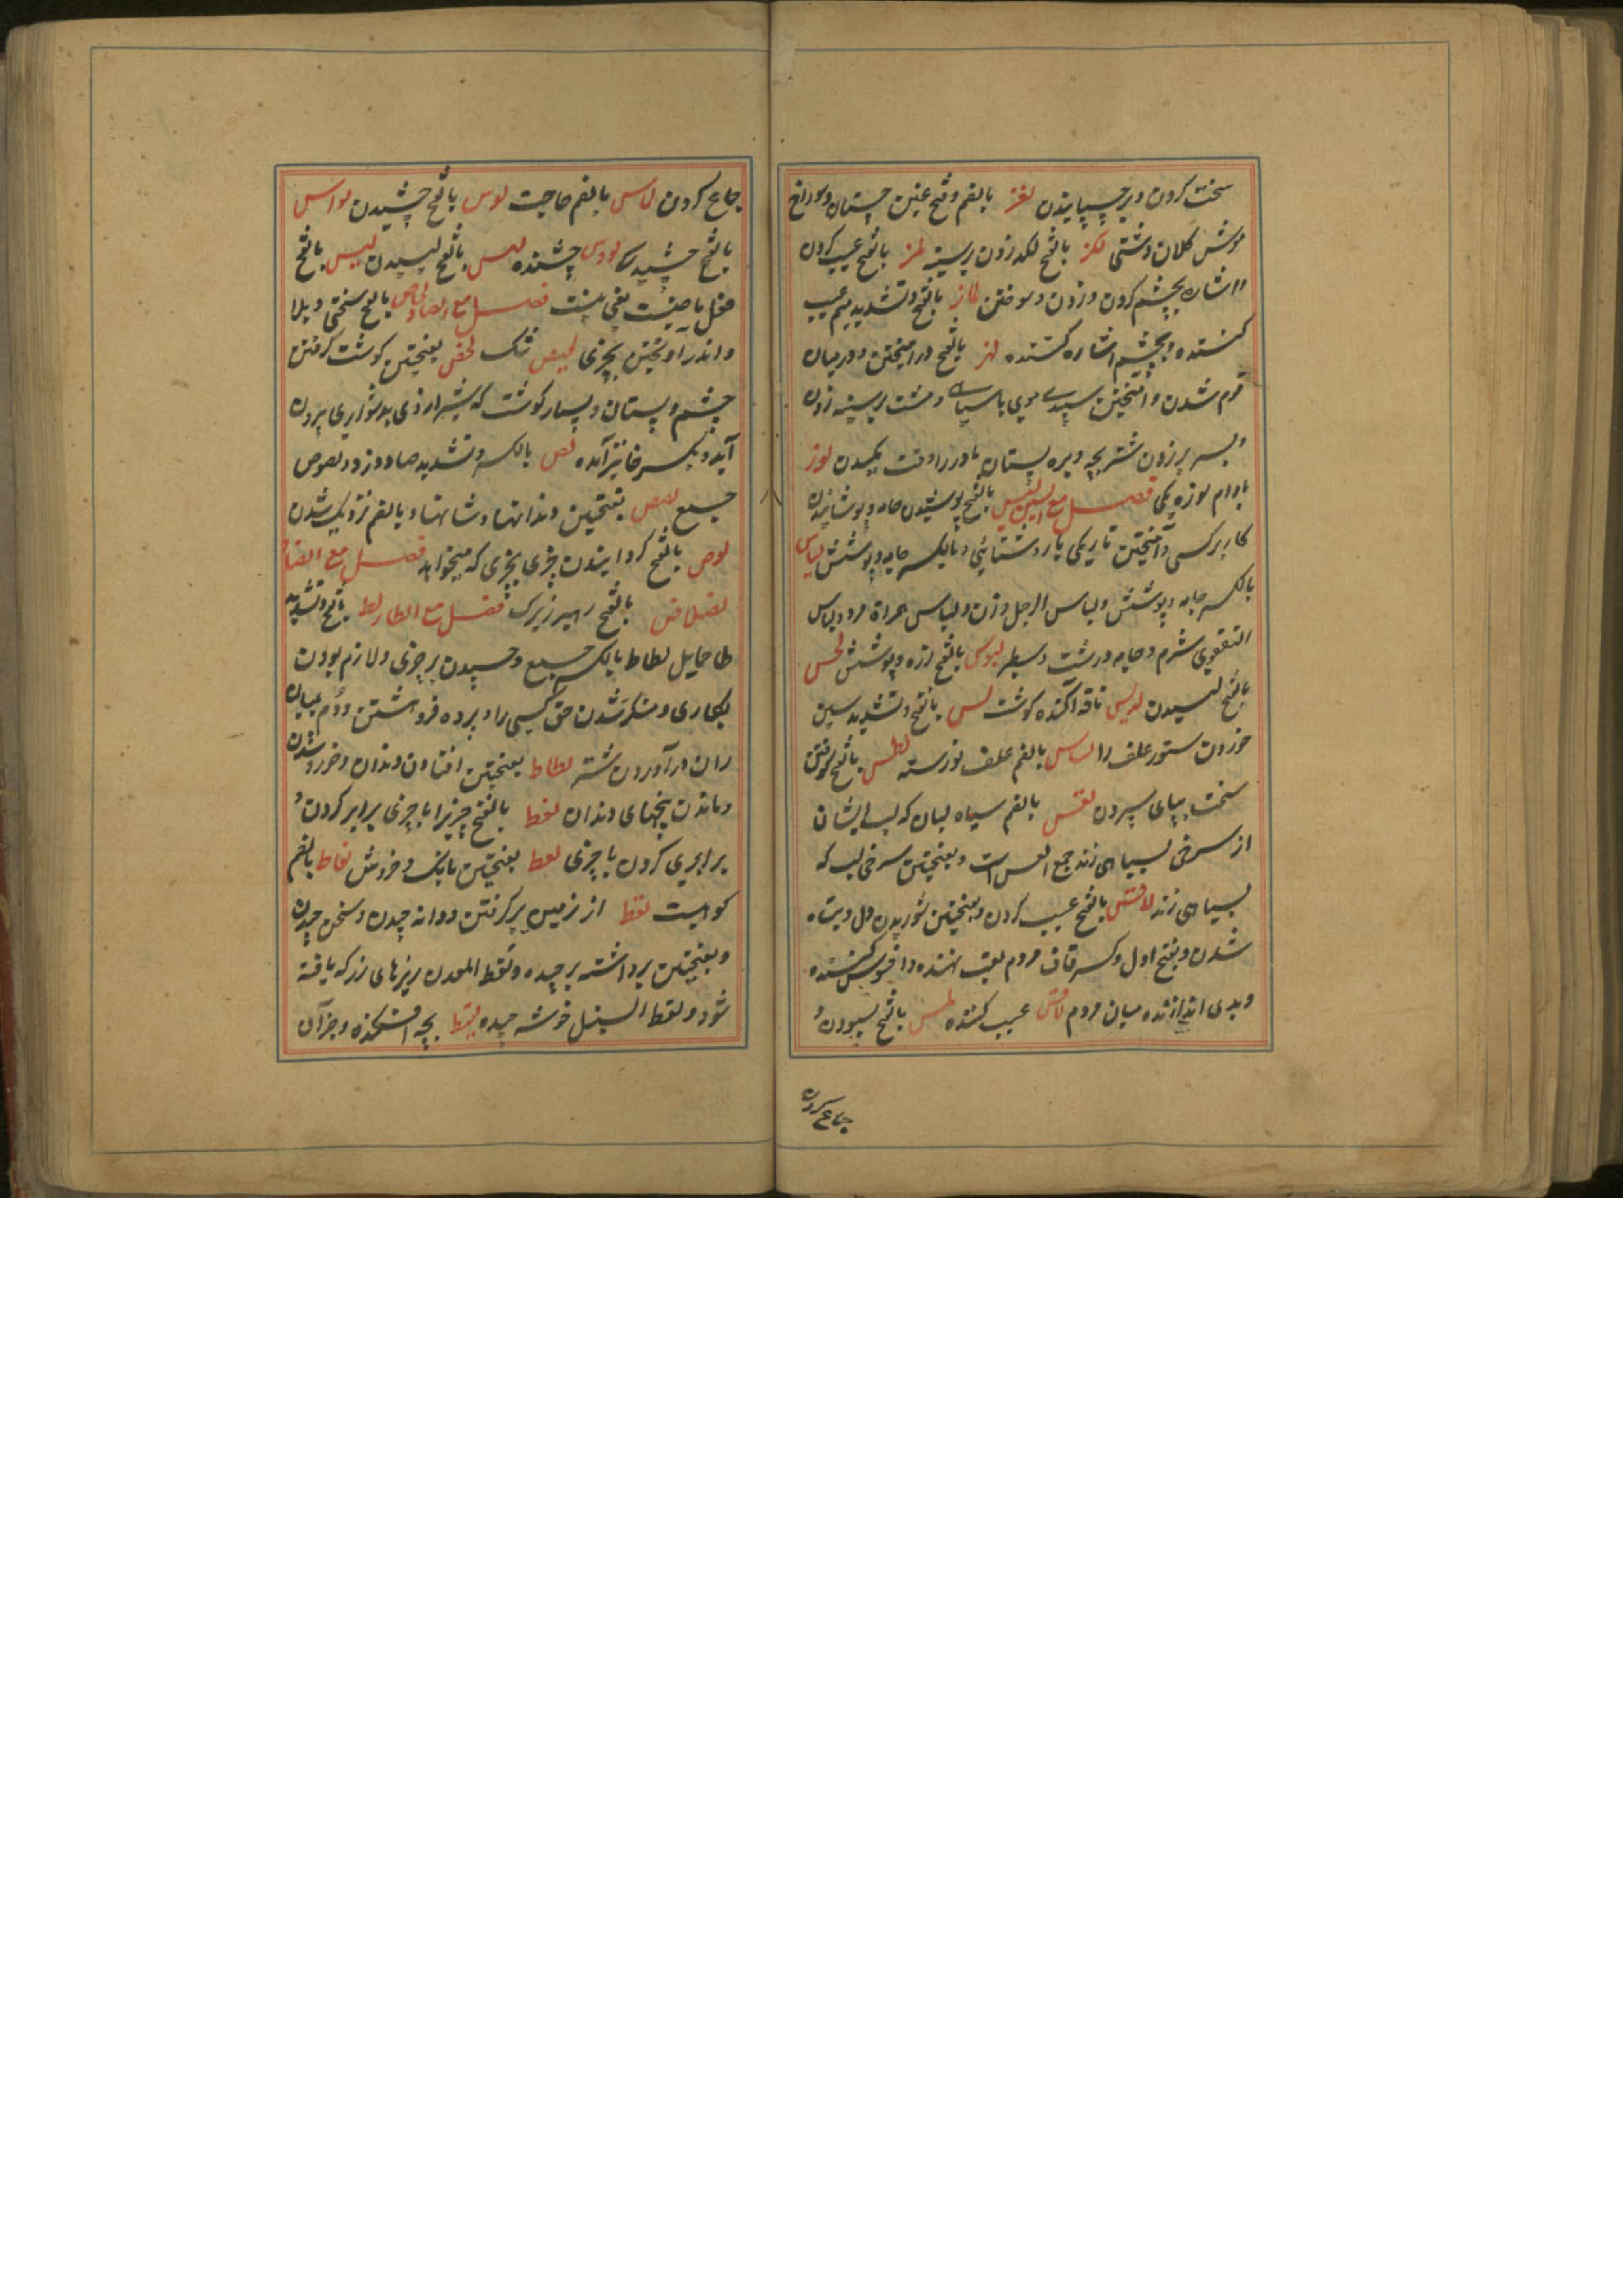 سخت کردن و بر چسپانیدن لغز بالضم و فتح غین چیستان و سوراخ
موش کلان دشتی لکز بالفتح لکد زدن بر سینه لمز بالفتح عیب کردن
و اشاره بچشم کردن و زدن و سوختن لماز بالفتح و تشدید میم عیب
کننده و بچشم اشاره کننده لهز بالفتح در امیختن و درمیان
قوم شدن و امیختن سپیدی موی با سیاهی و مشت بر سینه زدن
و سر بر زدن شتر بچه و بره پستان مادر را وقت مکیدن لوز
بادام لوزه یکی فصل مع السین لبس بالفتح پوشیدن جامه و پوشانیدن
کار بر کسی و آمیختن تاریکی با روشنائی و بالکسر جامه و پوشش لباس
بالکسر جامه و پوشش و لباس الرجل زن و لباس المراة مرد و لباس
التقوی شرم و جامه درشت و سطبر لبوس بالفتح زره و پوشش لحس
بالفتح لیسیدن لدیس ناقه آکنده گوشت لس بالفتح و تشدید سین
خوردن ستور علف را لساس بالضم علف نورسته لطس بالفتح کوفتن
سخت بپای سپردن لعس بالضم سیاه لبان که لب ایشان
از سرخی بسیاهی زند جمع العس است و بفتحتین سرخی لب که
بسیاهی زند لقس بالفتح عیب کردن و بفتحتین شوریدن دل و تباه
شدن و بفتح اول و کسر قاف مردم لقب نهنده و افسوس کننده
و بدی اندازنده میان مردم لاقس عیب کننده لمس بالفتح بسودن و
جماع کردن
جماع کردن لماس بالضم حاجت لوس بالفتح چشیدن لواس
بالفتح چشیدنی لووس چشنده لهس بالفتح لیسیدن لیس بالفتح
فعل ماضیست بمعنی نیست فصل مع الصاد لحاص بالفتح سختی و بلا
و اندر آویختن بچیزی لحیص تنگ لخص بفتحتین گوشت گرفتن
چشم و پستان و بسیار گوشت که شیر از وی بدشواری برون
آید و بکسر خا نیز آمده لص بالکسر و تشدید صاد دزد لصوص
جمع لصص بفتحتین دندانها و شانها و بالضم نزدیک شدن
لوص بالفتح گردانیدن چیزی بچیزی که میخواهد فصل مع الضاد
لضلاض بالفتح رهبر زیرک فصل مع الطا لط بالفتح و تشدید
طا حمایل لطاط بالکسر جمع و چسپیدن بر چیزی و لازم بودن
بکاری و منکر شدن حق کسی را و پرده فروهشتن و دم بمیان
ران درآوردن شتر لطاط بفتحتین افتادن دندان و خرد شدن
و ماندن بیخهای دندان لغط بالفتح چیزی را با چیزی برابر کردن و
برابری کردن با چیزی لغط بفتحتین بانگ و خروش لغاط بالضم
کوهیست لقط از زمین برگرفتن و دانه چیدن و سخن چیدن
و بفتحتین برداشته برچیده و لقط المعدن ریزهای زر که یافته
شود و لقط السنبل خوشه چیده لقیط بچه افکنده و جز آن